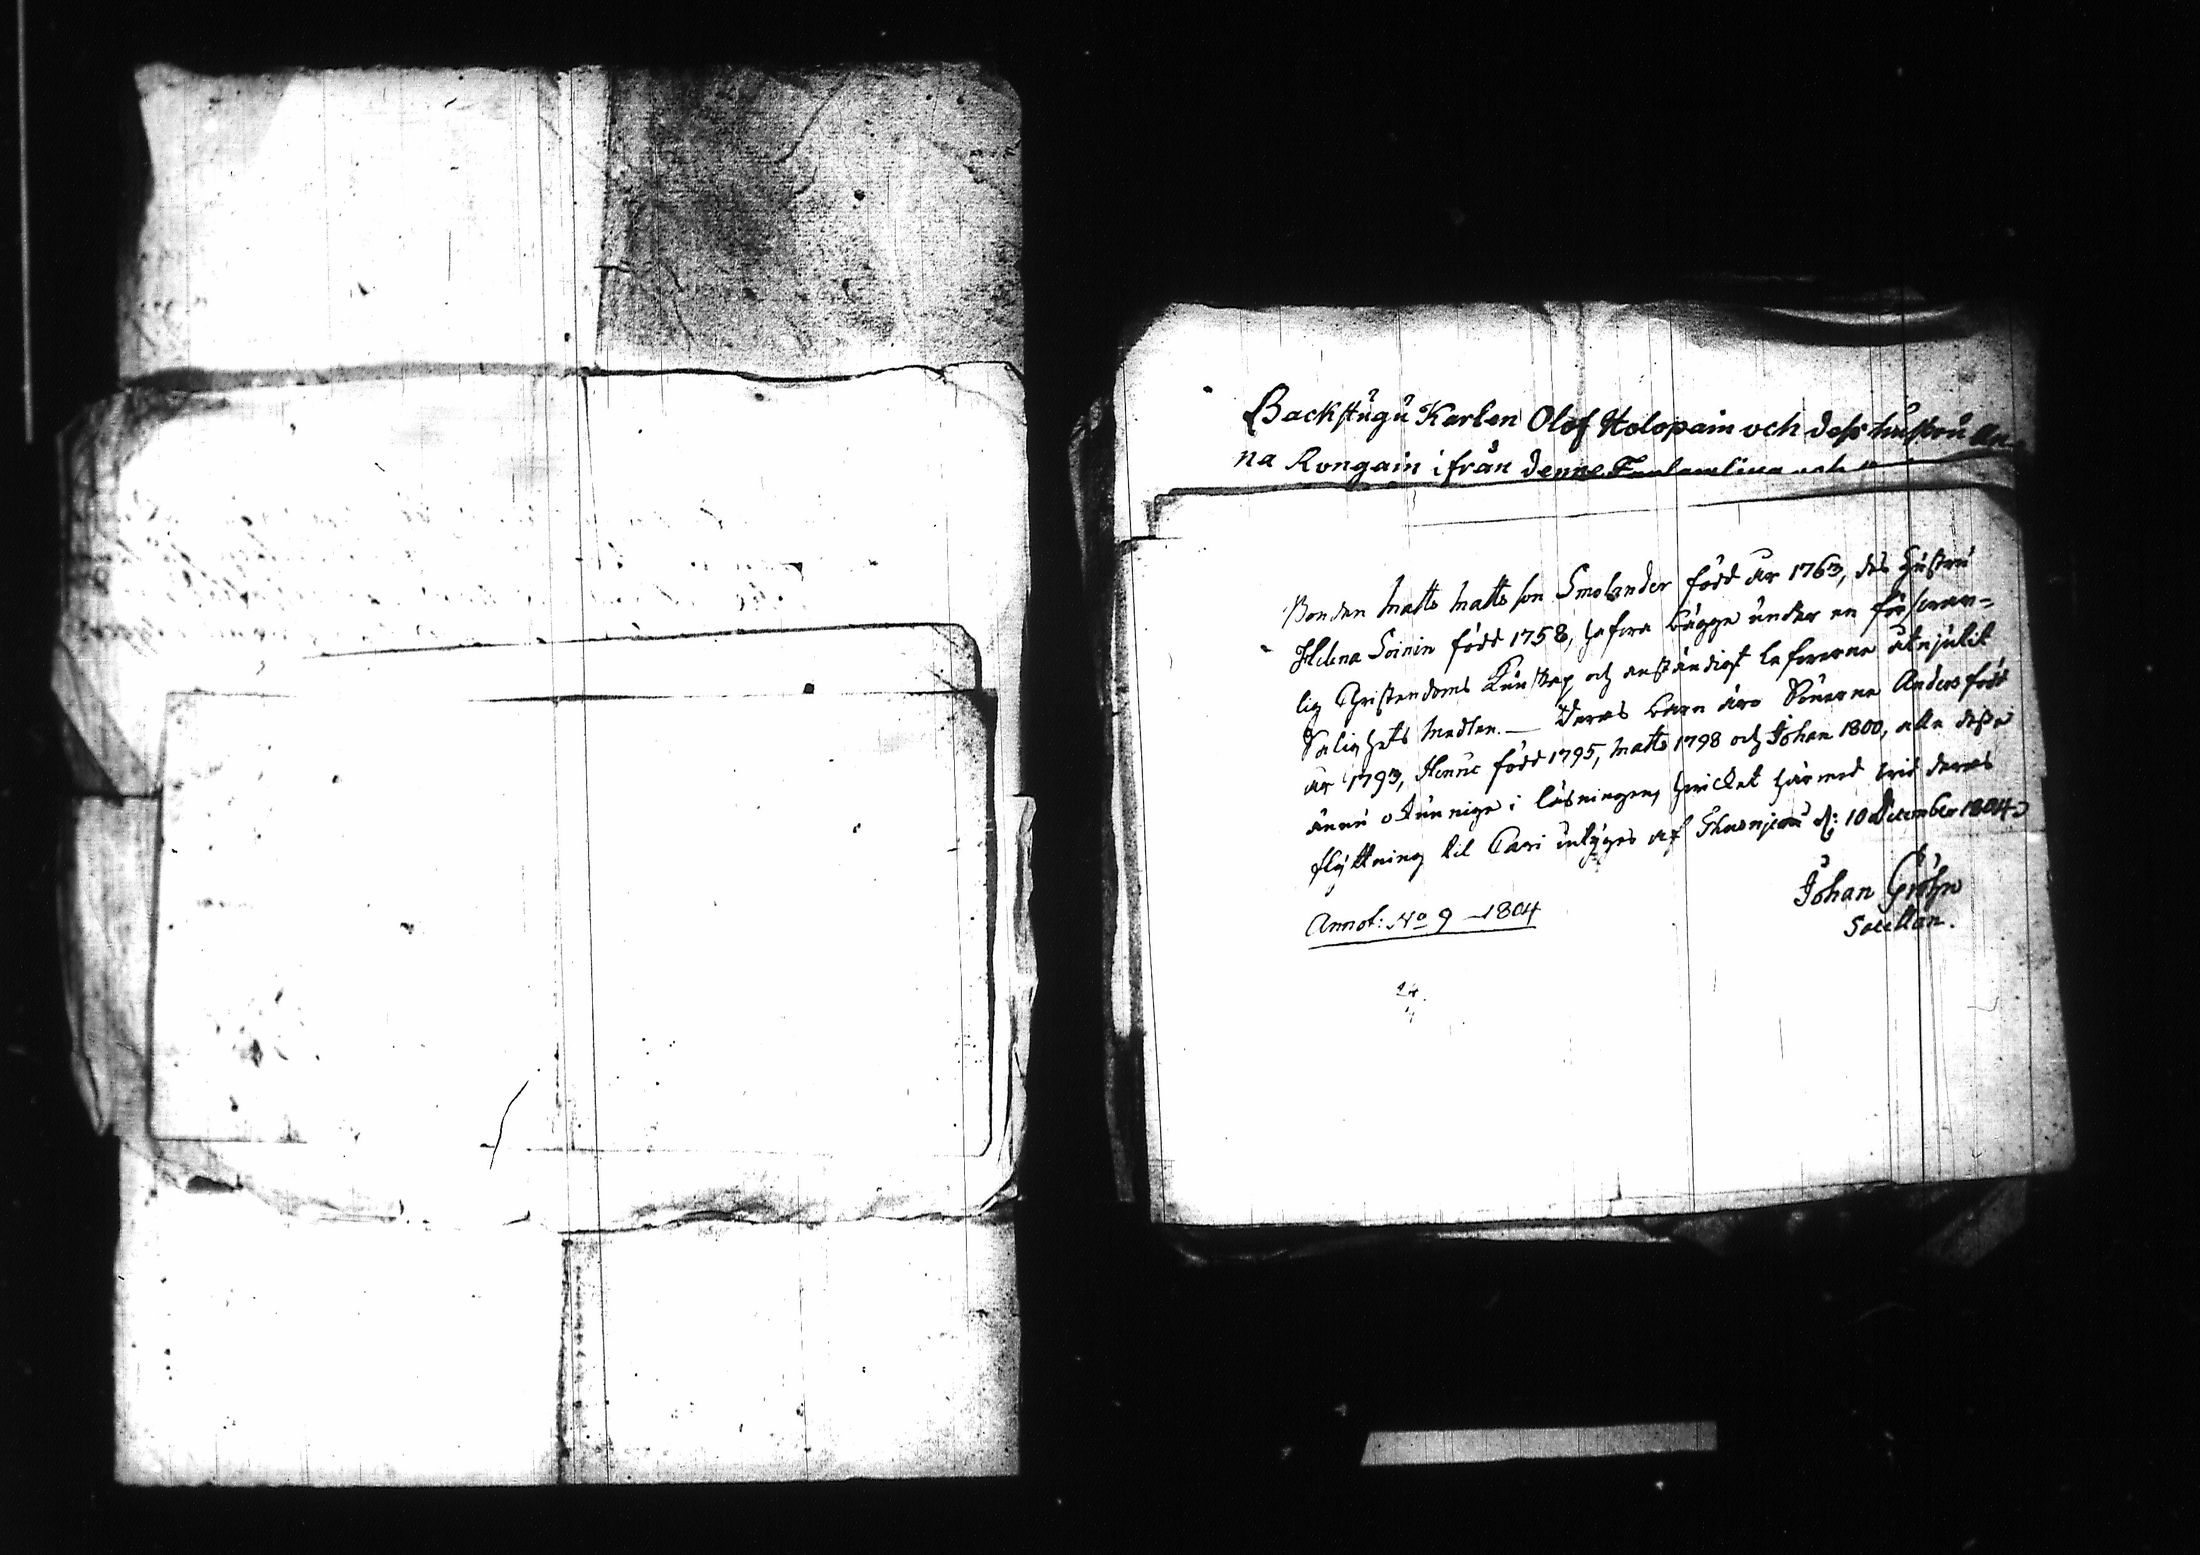 Backstugu Karlen Olof Holopain och dess hustru An
na Rongain ifrån denne
Bonden Matts Mattsson Smolander född år 1763, des Hustru
Helena Soinin född 1758, hafwa bägge under en förswar=
lig Christendoms Kunskap och anständigt lefwerne åtnjutit
Salighets Medlen. — Deras barn äro Sönerne Anders född
år 1793, Henric född 1795, Matts 1798 och Johan 1800, alla desse
ännu okunnige i läsningen, hwilket härmed wid deras
flyttning til intyges af d: 10 December 1804
Johan Gröhn
Sacellan.
Annot: No 9 — 1804